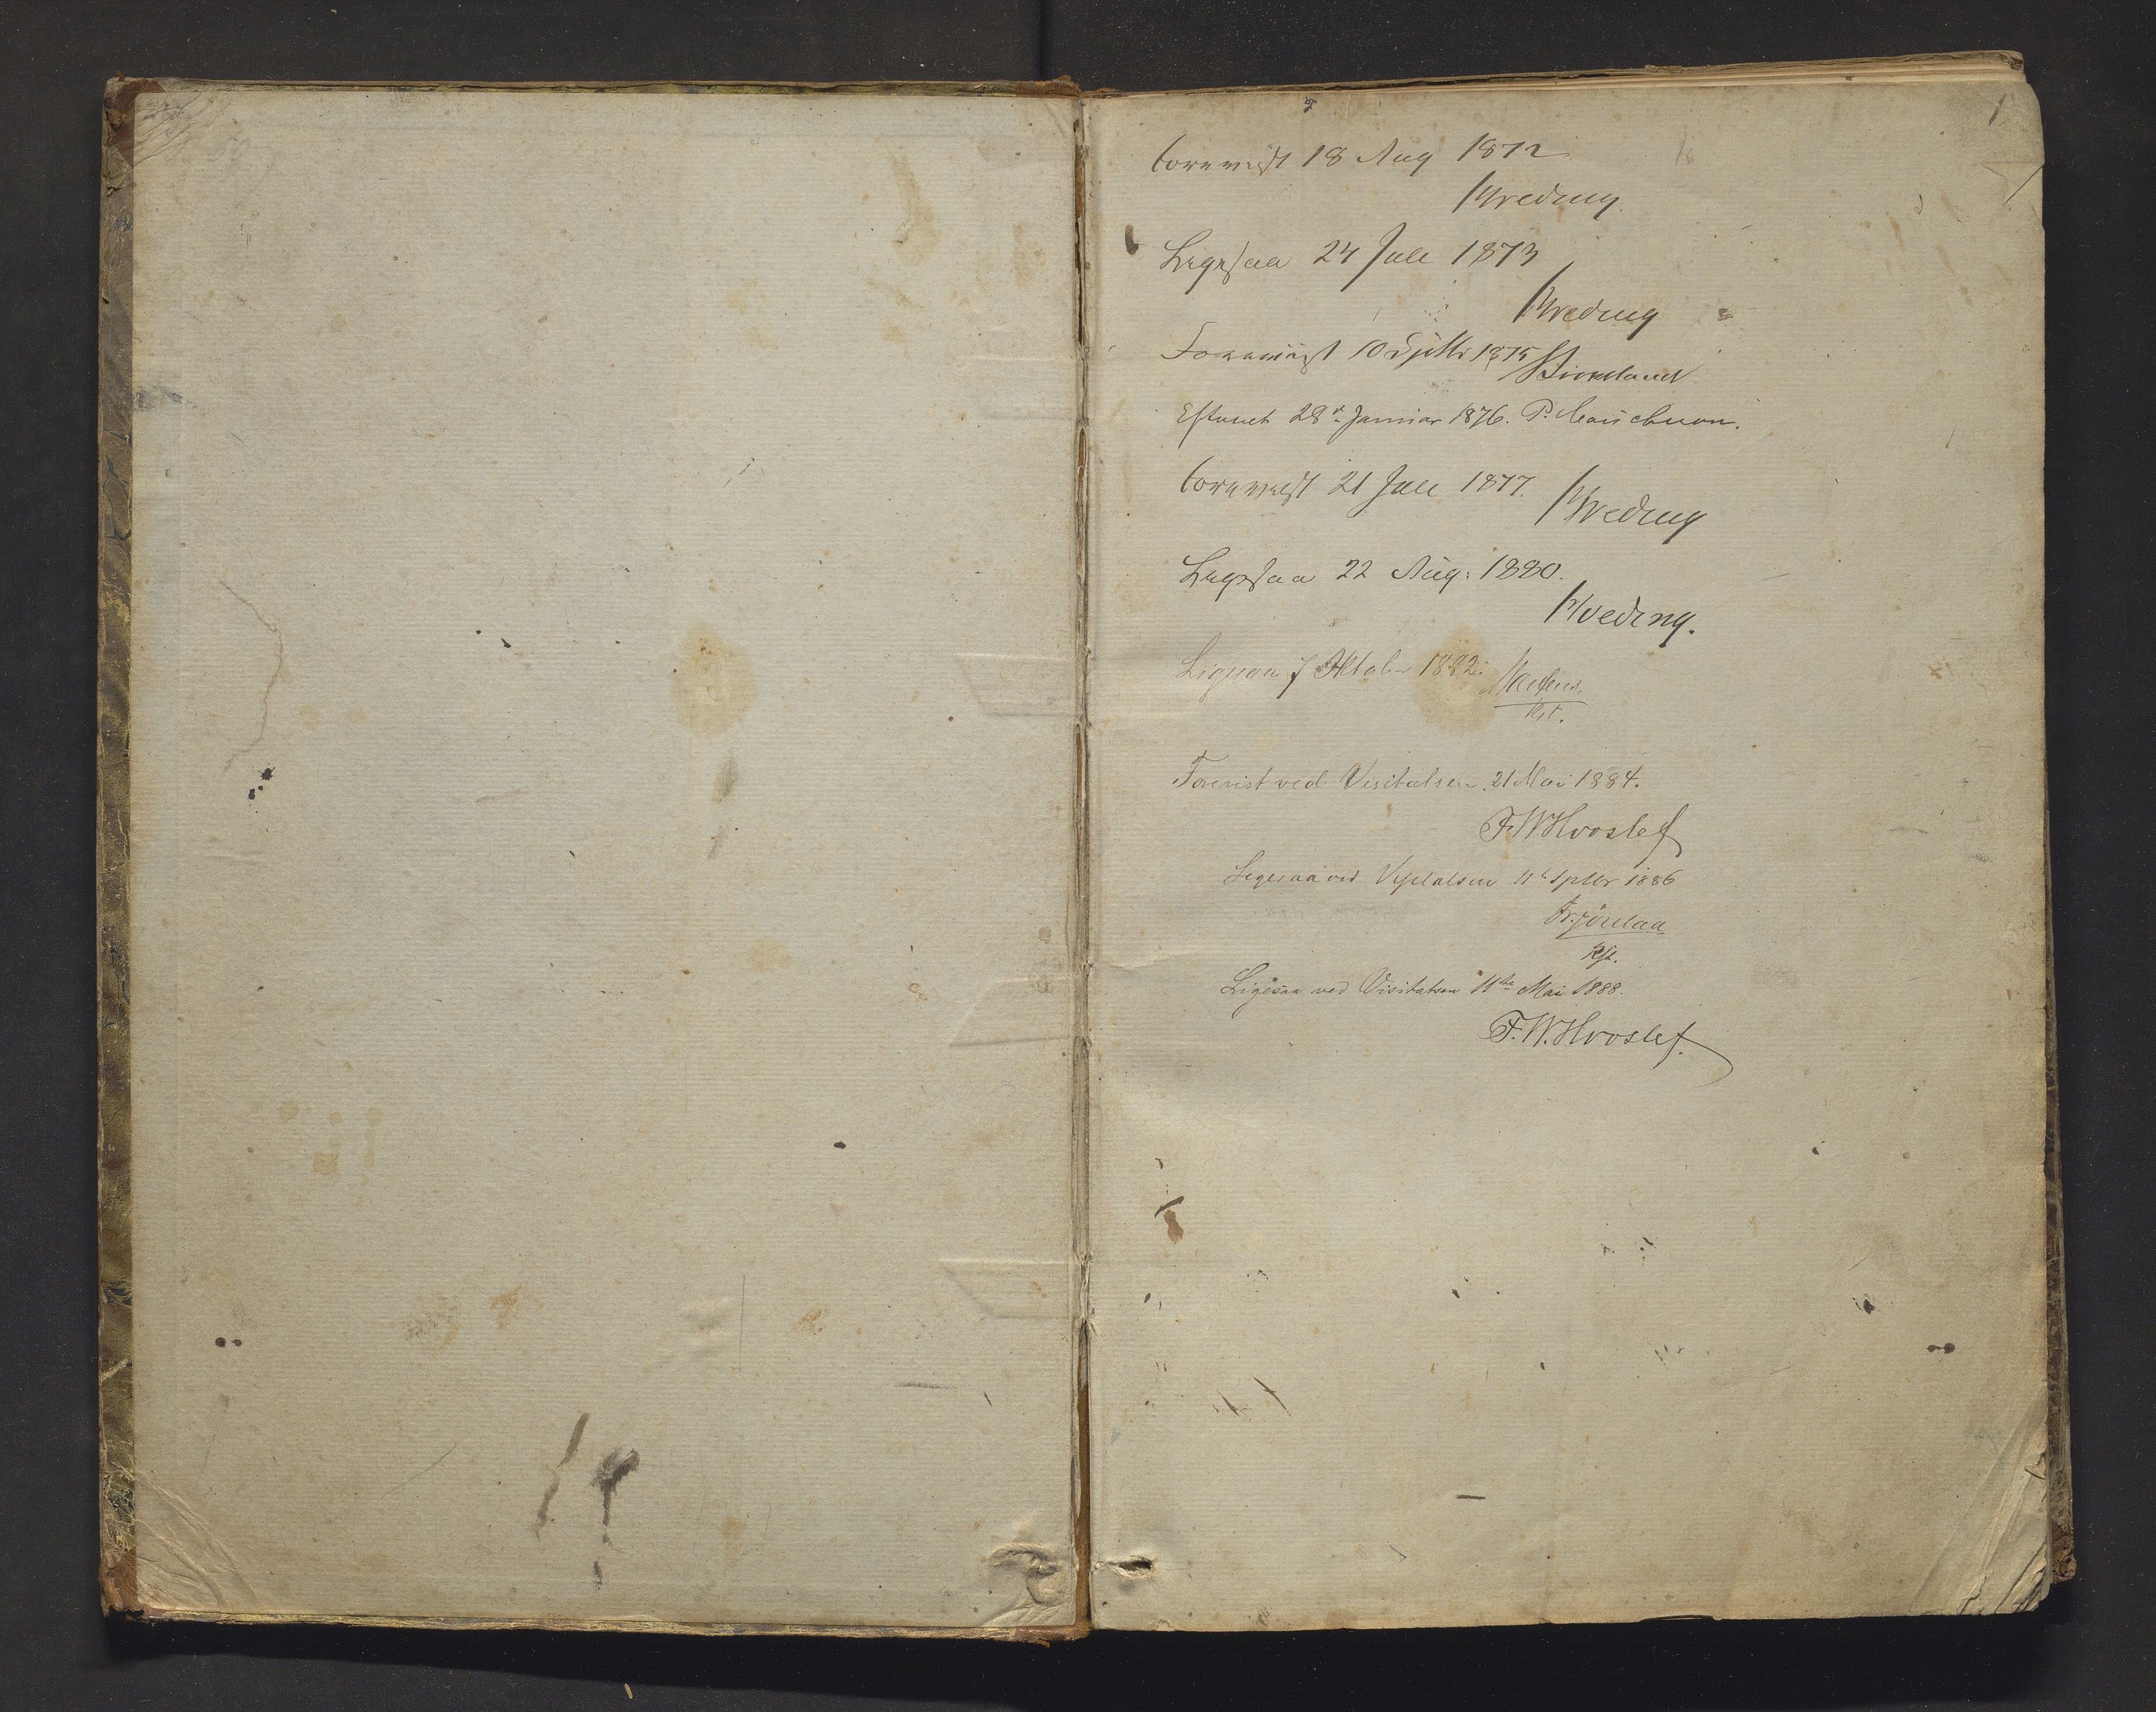 1
forevist 18 Aug 1872
Kveding
Ligesaa 24 Juli 1873
Kveding
Forevist 10 Sptbr 1875
Efterseet 28de Januar 1876. P.
forevist 21 Juli 1877.
Kveding
Ligesaa 22 Aug: 1880.
Kveding.
Ligesaa 7 Oktober 1882.
Kst.
Forevist ved Visitatsen. 21 Mai 1884.
F.W Hvoslef
Ligesaa ved Visitatsen 11te Sptbr 1886
Kst.
Ligesaa ved Visitatsen 11te Mai 1888.
F.W. Hvoslef.